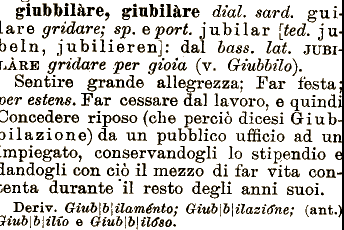 giubbilàre, giubilàre dial. sard. gui-
lare gridare; sp. e port. jubilar [ted. ju-
beln, jubilieren]: dal bass. lat. JUBI-
LÀRE gridare per gioia (v. Giubbilo).
Sentire grande allegrezza; Far festa;
per estens. Far cessare dal lavoro, e quindi
Concedere riposo (che perciò dicesi Giub-
bilazione) da un pubblico ufficio ad un
impiegato, conservandogli lo stipendio e
dandogli con ciò il mezzo di far vita con-
tenta durante il resto degli anni suoi.
Deriv. Giub|b|ilaménto; Giub|b|ilazióne; (ant.)
Giub|b|ilío e Giub|b|ilóso.